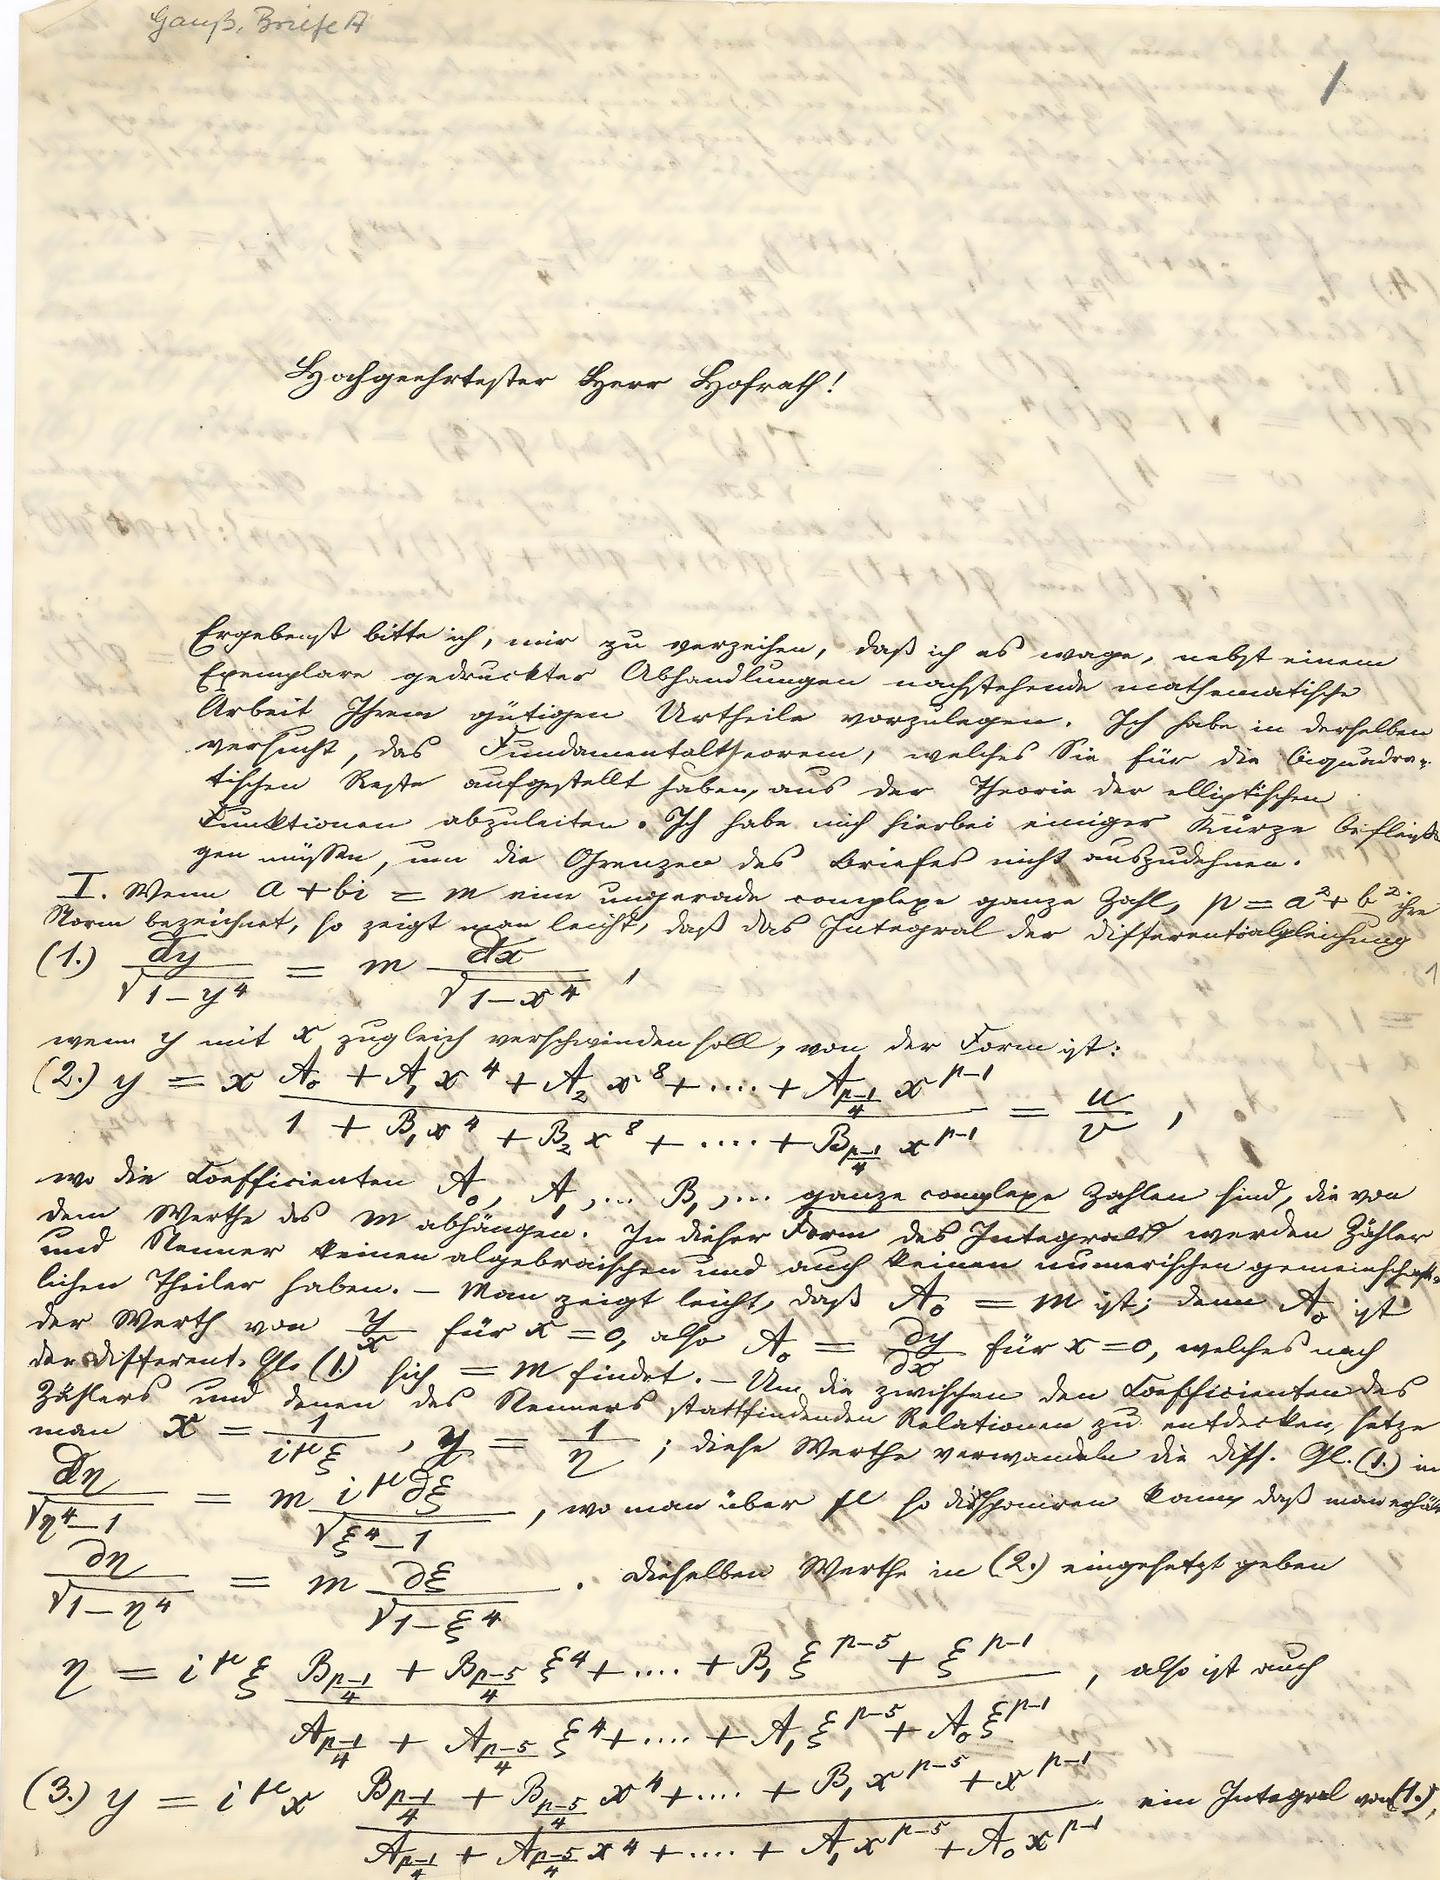 Gauß, Briefe A
1
Hochgeehrtester Herr Hofrath!
Ergebenst bitte ich, mir zu verzeihen, daß ich es wage, nebst einem
Exemplare gedruckter Abhandlungen nachstehende mathematische
Arbeit Ihrem gütigen Urtheile vorzulegen. Ich habe in derselben
versucht, das Fundamentaltheorem, welches Sie für die biquadra-
tischen Reste aufgestellt haben, aus der Theorie der elliptischen
Funktionen abzuleiten. Ich habe mich hierbei einiger Kürze befleißi-
gen müssen, um die Grenzen des Briefes nicht auszudehnen.
I. Wenn a + bi = m eine ungerade complexe ganze Zahl, p = a² + b² ihre
Norm bezeichnet, so zeigt man leicht, daß das Integral der Differentialgleichung
(1.) dy/√(1−y⁴) = m dx/√(1−x⁴),
wenn y mit x zugleich verschwinden soll, von der Form ist:
(2.) y = x (A₀ + A₁x⁴ + A₂x⁸ + .... + A_{(p−1)/4} x^{p−1})/(1 + B₁x⁴ + B₂x⁸ + .... + B_{(p−1)/4} x^{p−1}) = u/v,
wo die Coefficienten A₀, A₁, ... B₁, ... ganze complexe Zahlen sind, die von
dem Werthe des m abhängen. In dieser Form des Integrals werden Zähler
und Nenner keinen algebraischen und auch keinen numerischen gemeinschaft-
lichen Theiler haben. – Man zeigt leicht, daß A₀ = m ist; denn A₀ ist
der Werth von y/x für x = 0, also A₀ = ∂y/∂x für x = 0, welches nach
der different. Gl. (1.) sich = m findet. – Um die zwischen den Coefficienten des
Zählers und denen des Nenners stattfindenden Relationen zu entdecken, setze
man x = 1/(i^μ ξ), y = 1/η; diese Werthe verwandeln die diff. Gl. (1.) in
dη/√(η⁴−1) = m i^μ ∂ξ/√(ξ⁴−1), wo man über μ so disponiren kann, daß man erhält
∂η/√(1−η⁴) = m ∂ξ/√(1−ξ⁴). Dieselben Werthe in (2.) eingesetzt geben
η = i^μ ξ (B_{(p−1)/4} + B_{(p−5)/4} ξ⁴ + .... + B₁ ξ^{p−5} + ξ^{p−1})/(A_{(p−1)/4} + A_{(p−5)/4} ξ⁴ + .... + A₁ ξ^{p−5} + A₀ ξ^{p−1}), also ist auch
(3.) y = i^μ x (B_{(p−1)/4} + B_{(p−5)/4} x⁴ + .... + B₁ x^{p−5} + x^{p−1})/(A_{(p−1)/4} + A_{(p−5)/4} x⁴ + .... + A₁ x^{p−5} + A₀ x^{p−1}) ein Integral von (1.),